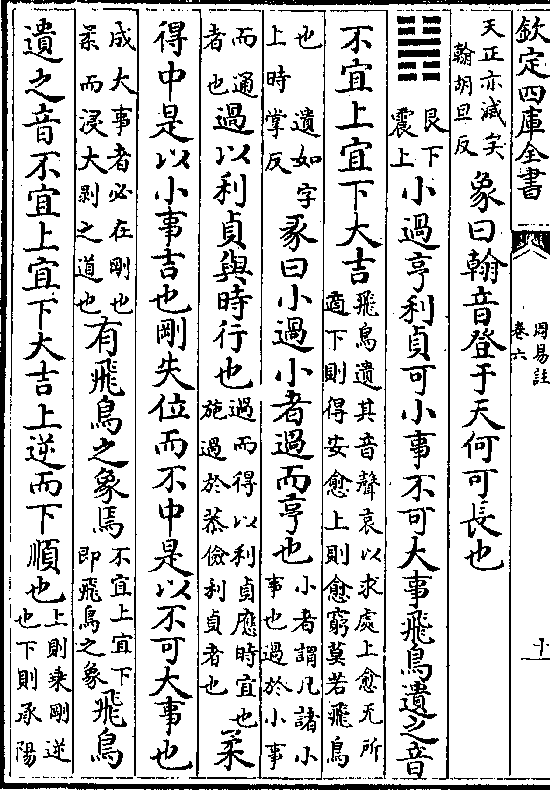 欽定四庫全書
周易註
卷六
十一
天正亦滅矣
翰胡旦反
象曰翰音登于天何可長也
䷽
艮下
震上
小過亨利貞可小事不可大事飛鳥遺之音
不宜上宜下大吉
飛鳥遺其音聲哀以求處上愈无所
適下則得安愈上則愈窮莫若飛鳥
也 遺如字
上時掌反
彖曰小過小者過而亨也
小者謂凡諸小
事也過於小事
而通
者也
過以利貞與時行也
過而得以利貞應時宜也
施過於恭儉利貞者也
柔
得中是以小事吉也剛失位而不中是以不可大事也
成大事者必在剛也
柔而浸大剝之道也
有飛鳥之象焉
不宜上宜下
即飛鳥之象
飛鳥
遺之音不宜上宜下大吉上逆而下順也
上則乘剛逆
也下則承陽